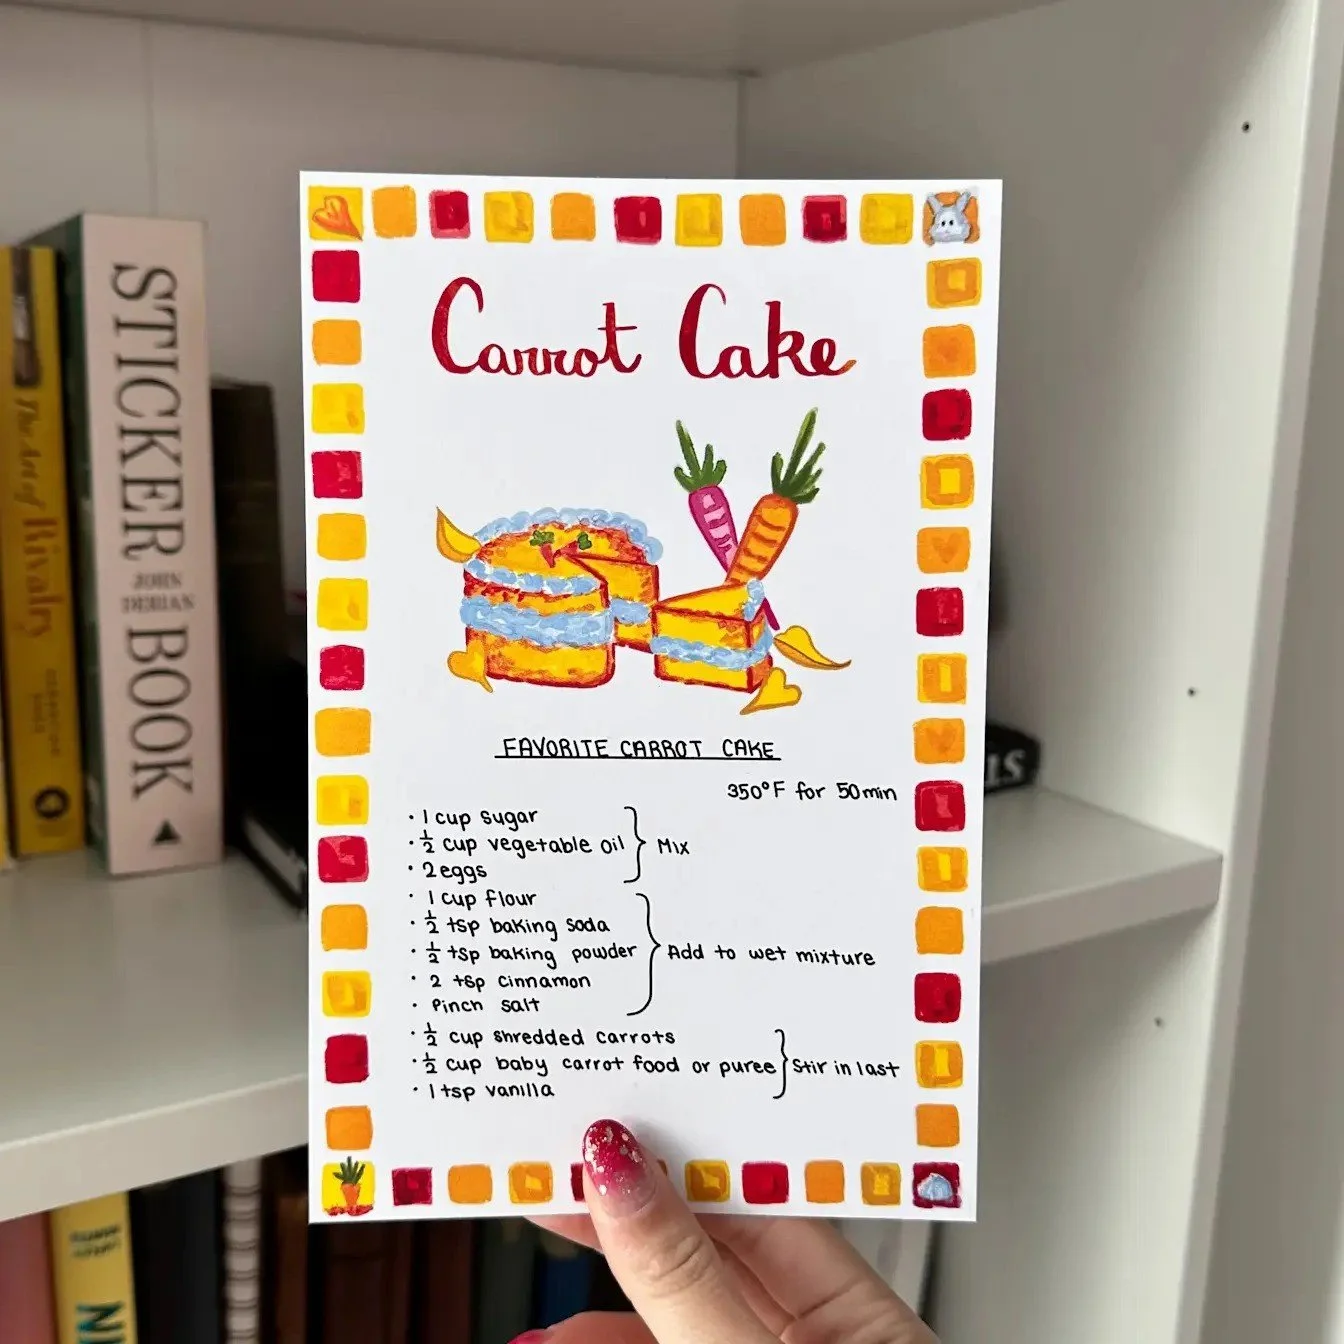 The Art of Rivalry
STICKER
JOHN
DERIAN
BOOK
Carrot Cake
FAVORITE CARROT CAKE
350°F for 50 min
· 1 cup sugar
· ½ cup vegetable oil } Mix
· 2 eggs
· 1 cup flour
· ½ tsp baking soda
· ½ tsp baking powder } Add to wet mixture
· 2 tsp cinnamon
· Pinch salt
· ½ cup shredded carrots
· ½ cup baby carrot food or puree } Stir in last
· 1 tsp vanilla